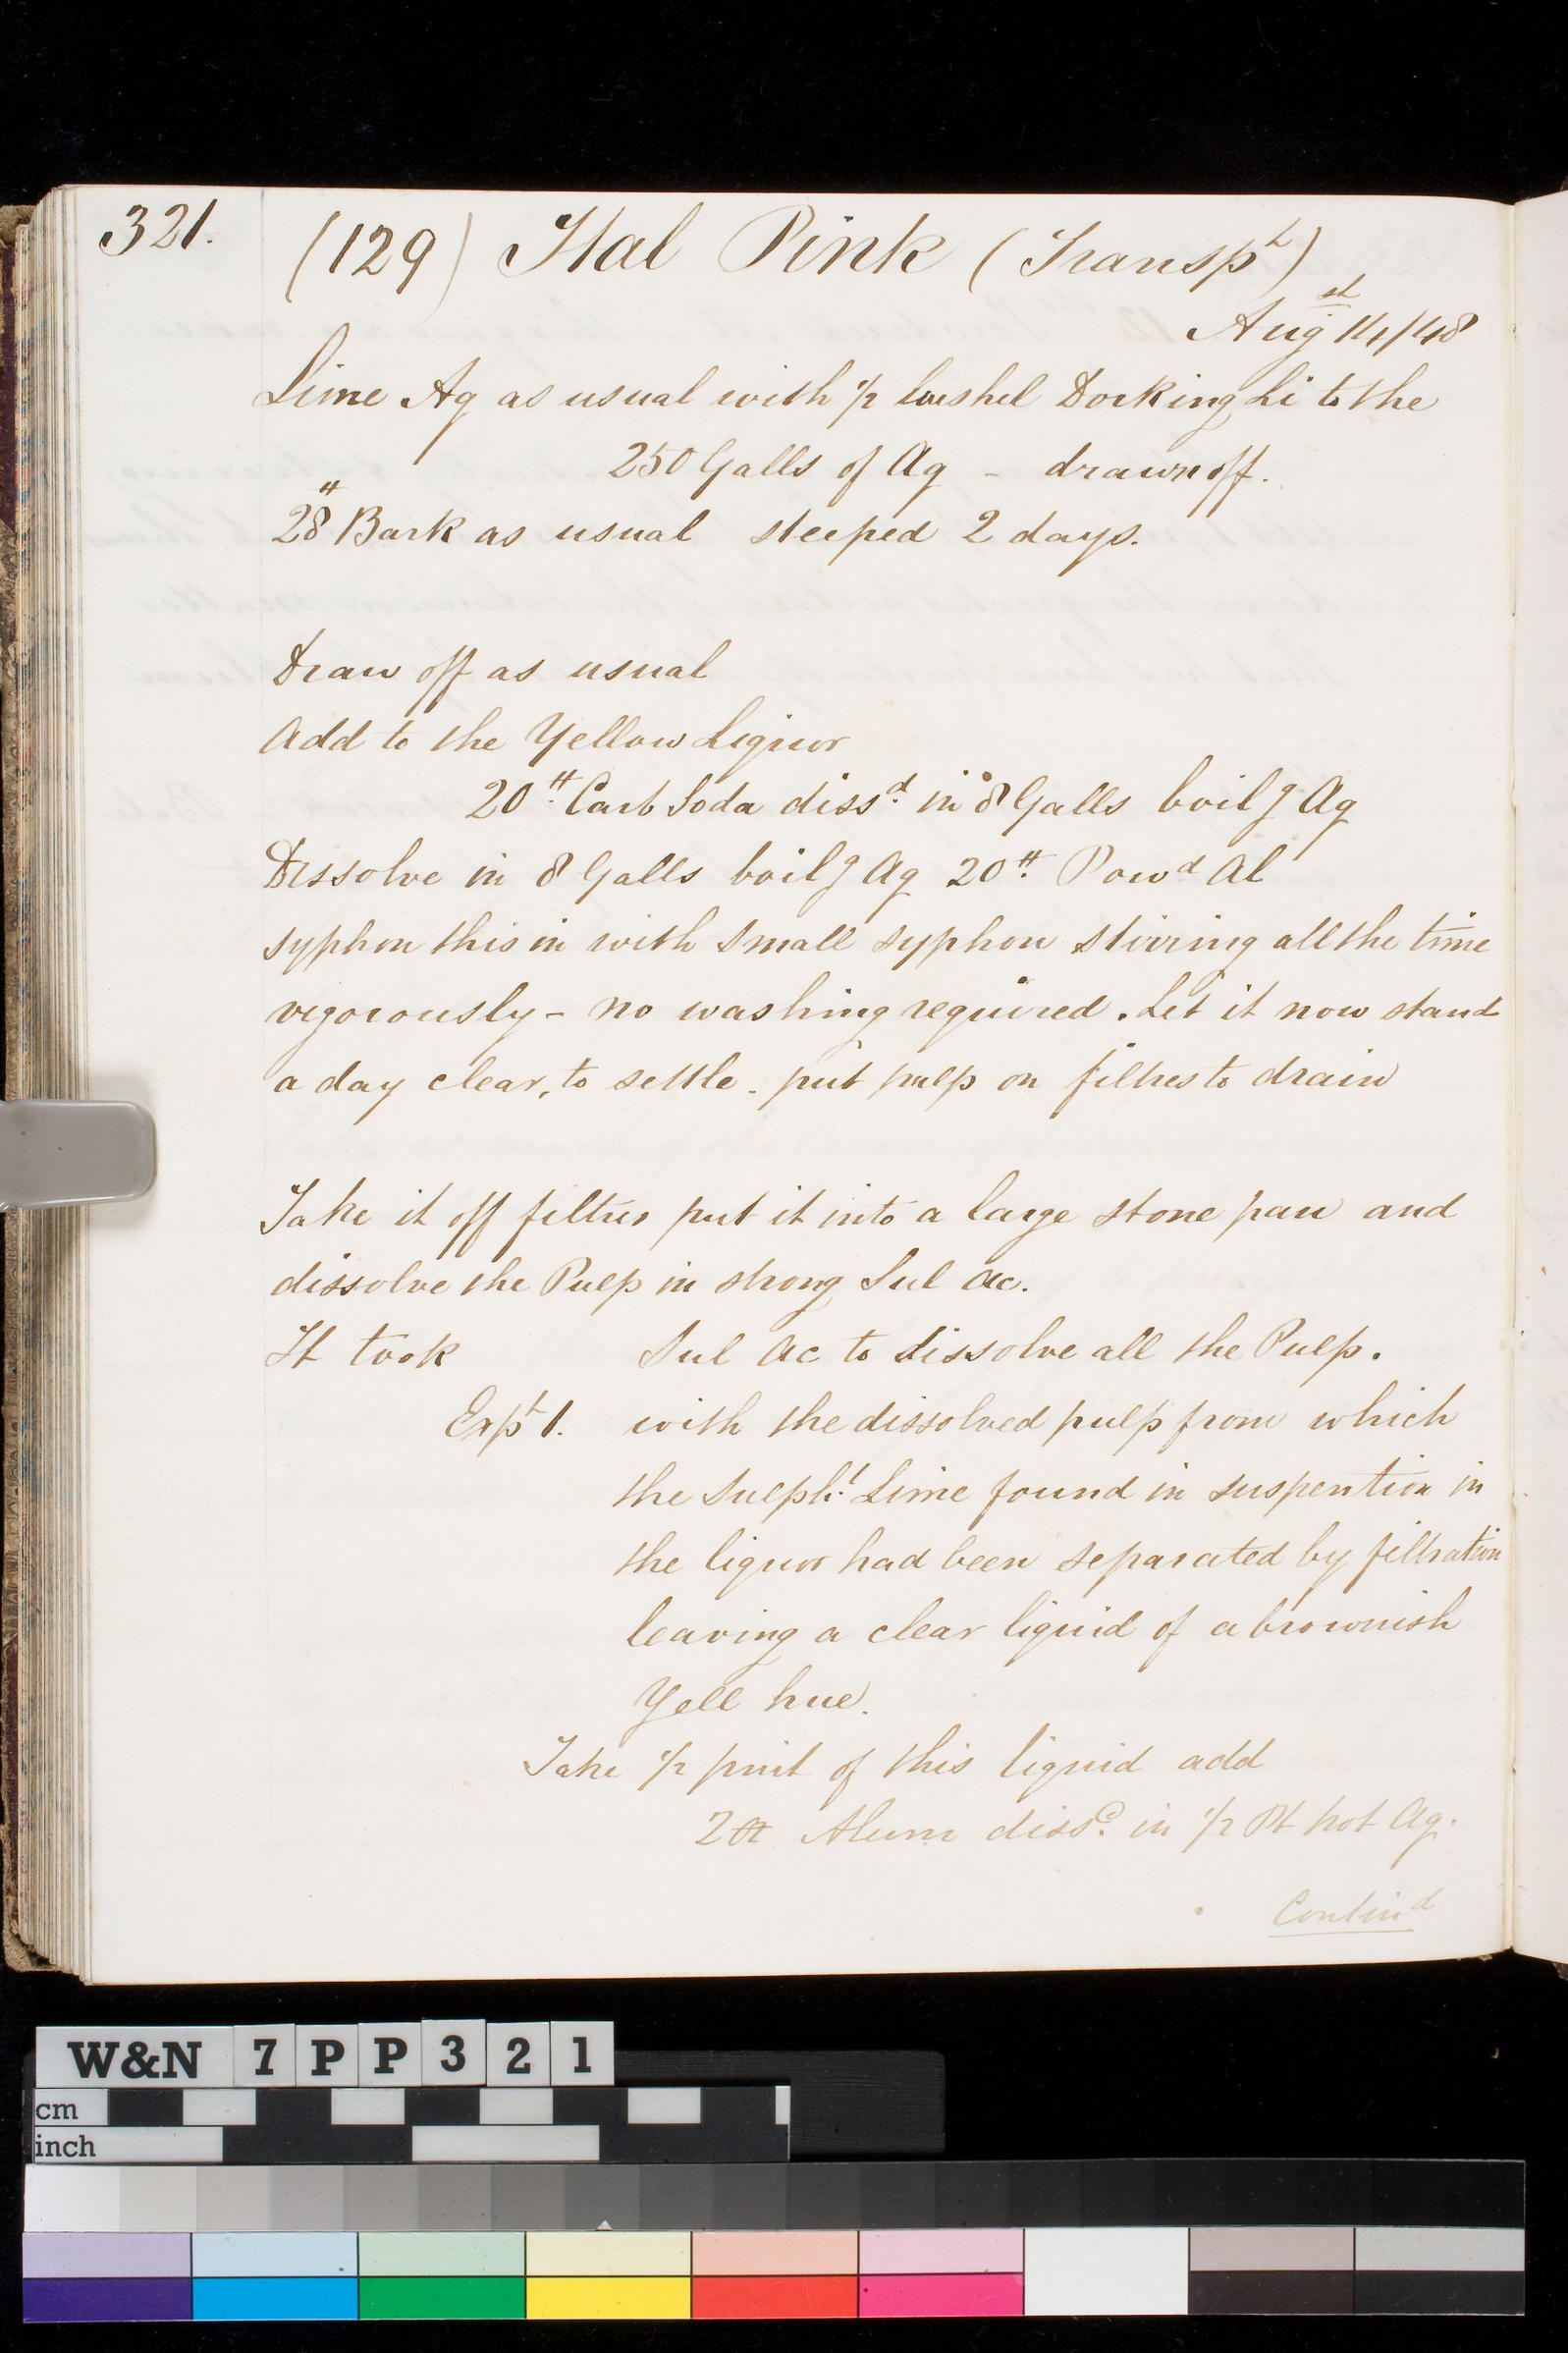 321.
(129) Ital Pink (Transpt)
Augst 14/48
Lime Aq as usual with 1/2 bushel Dorking Li to the
250 Galls of Aq - drawn off.
28 lb Bark as usual steeped 2 days.
Draw off as usual
Add to the Yellow Liquor
20 lb Carb Soda dissd. in 8 Galls boilg Aq
Dissolve in 8 Galls boilg Aq 20 lb Powd Al
syphon this in with small syphon stirring all the time
vigorously - no washing required. Let it now stand
a day clear, to settle. put pulp on filtres to drain
Take it off filtres put it into a large stone pan and
dissolve the Pulp in strong Sul Ac.
It took Sul Ac to dissolve all the Pulp.
Expt 1. with the dissolved pulp from which
the Sulpht. Lime found in suspention in
the liquor had been separated by filtration
leaving a clear liquid of a brownish
Yell hue.
Take 1/2 pint of this liquid add
2 lb Alum dissd. in 1/2 Pt hot Aq.
Contind
W&N 7PP321
cm
inch